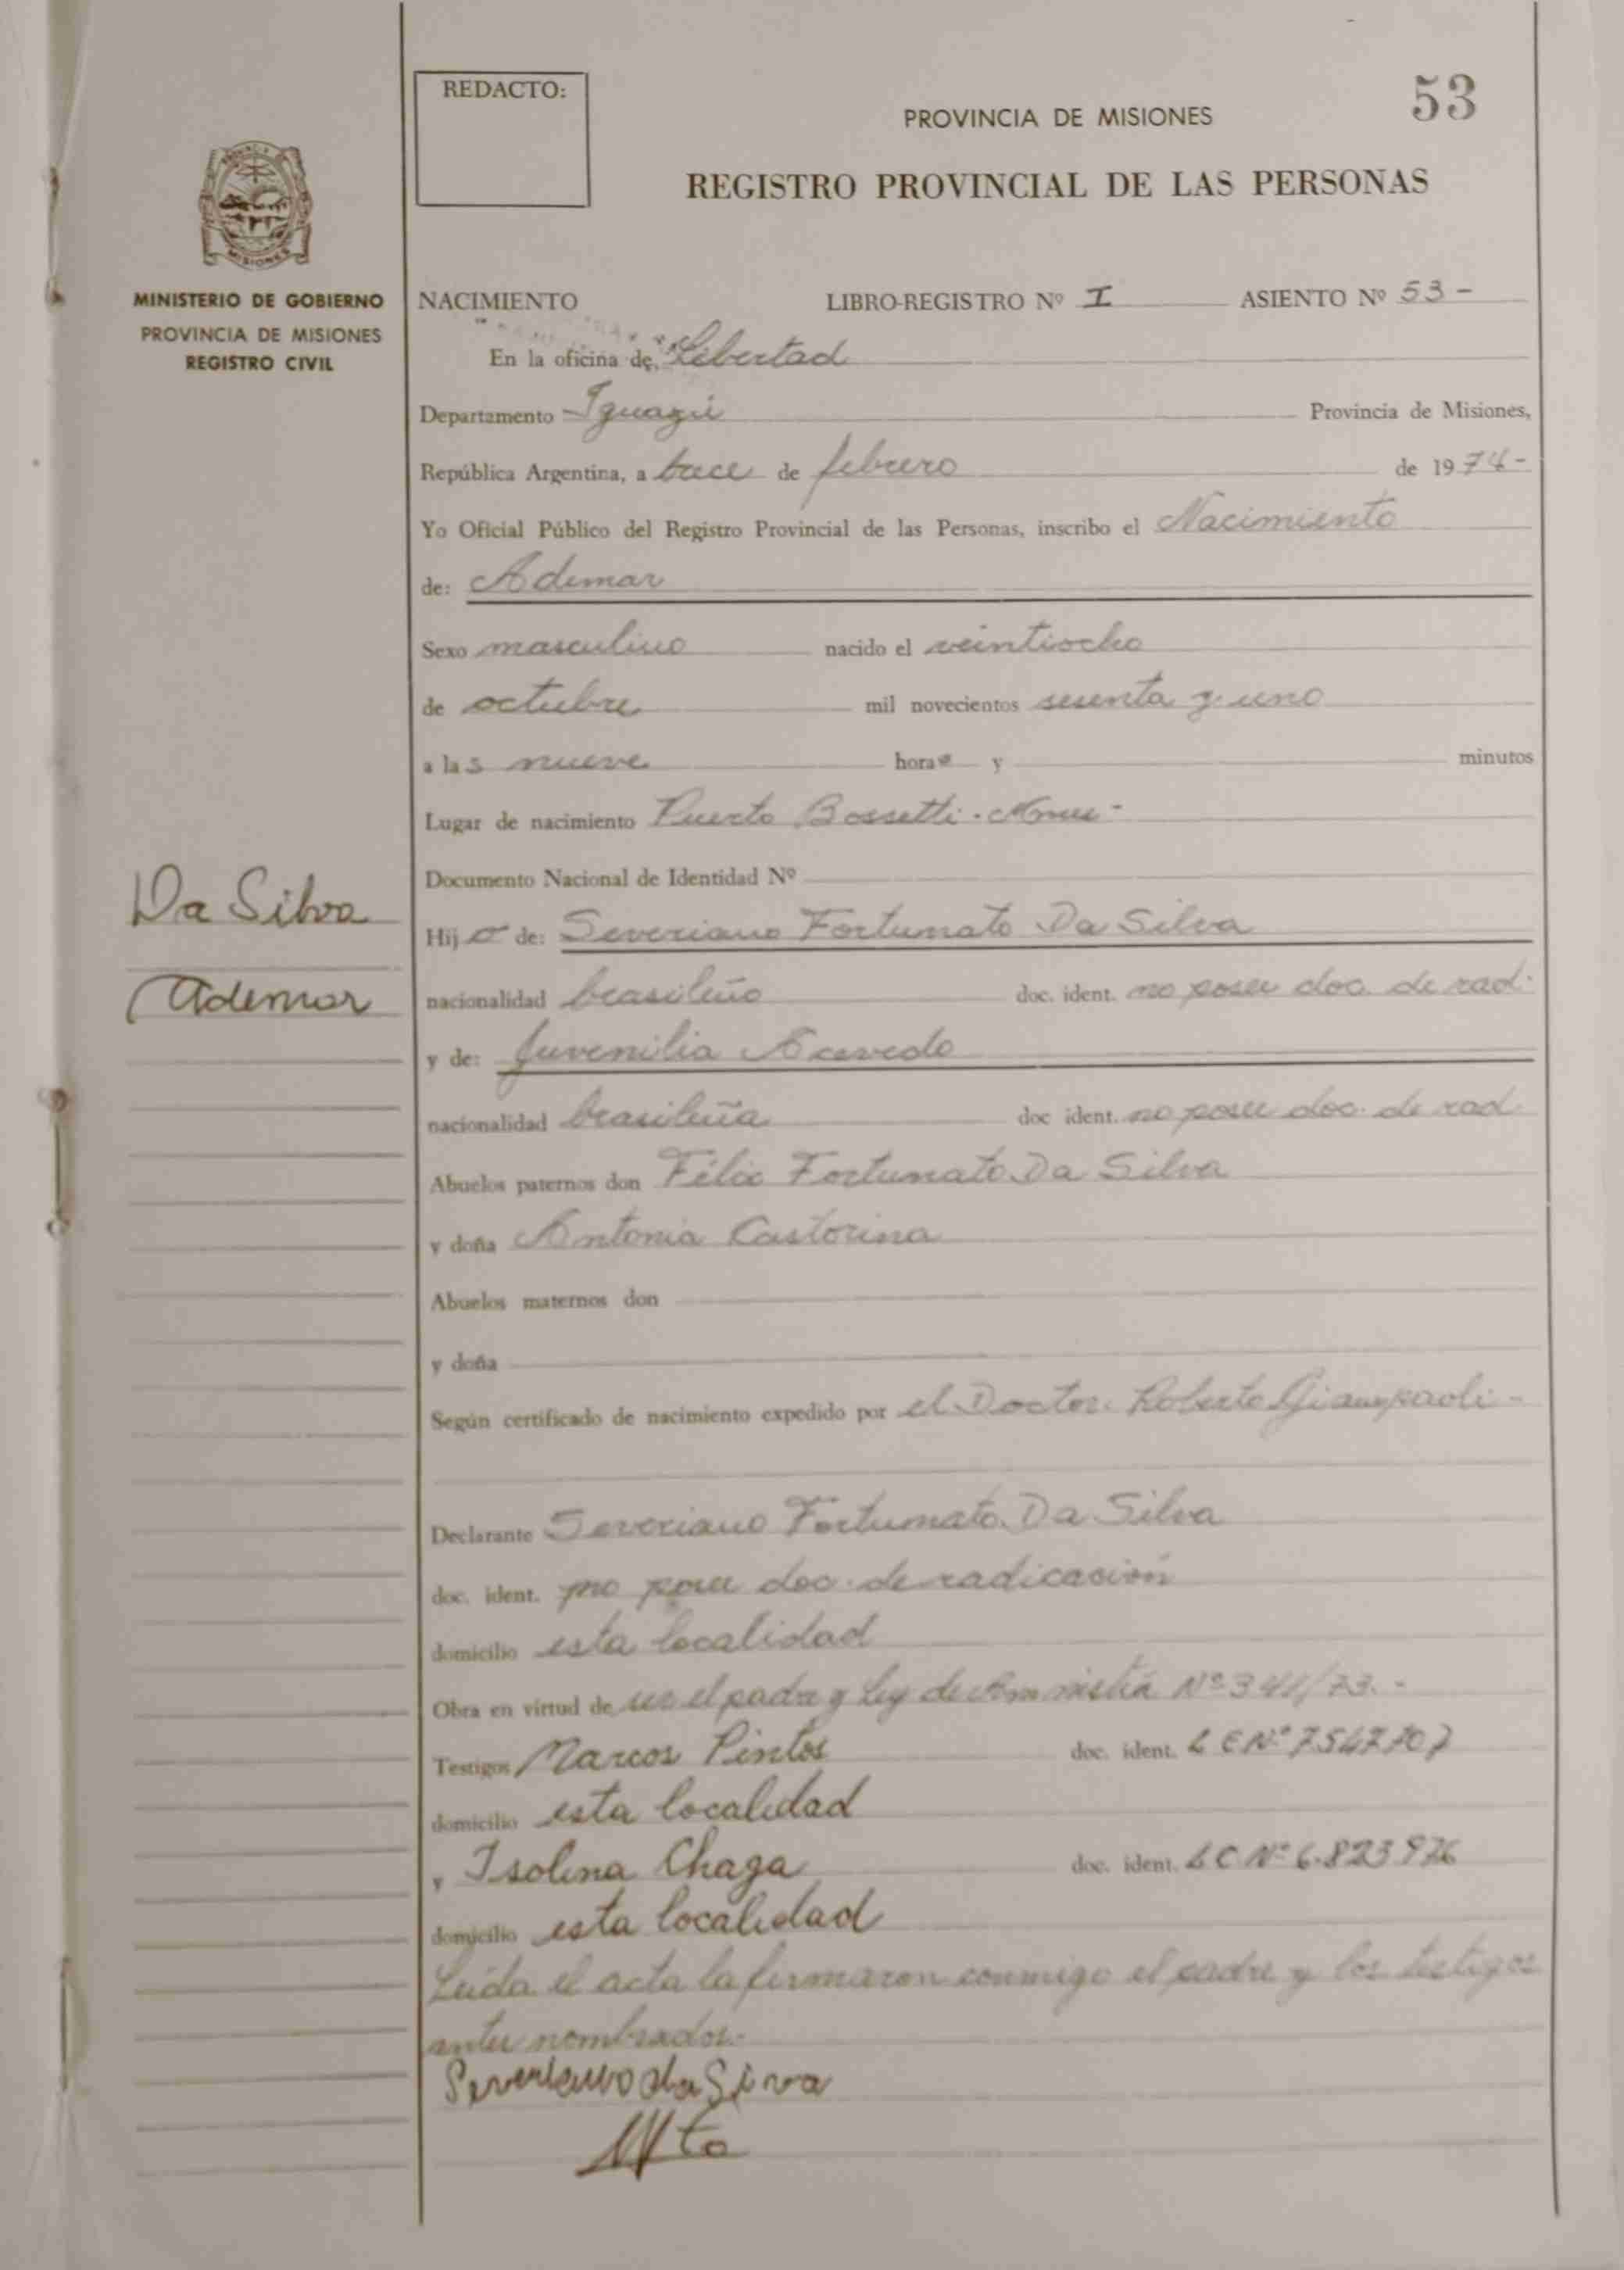 REDACTO:
53
PROVINCIA DE MISIONES
REGISTRO PROVINCIAL DE LAS PERSONAS
MISIONES
MINISTERIO DE GOBIERNO
PROVINCIA DE MISIONES
REGISTRO CIVIL
NACIMIENTO LIBRO-REGISTRO Nº I ASIENTO Nº 53 -
En la oficina de Libertad
Departamento Iguazú Provincia de Misiones,
República Argentina, a trece de febrero de 1974-
Yo Oficial Público del Registro Provincial de las Personas, inscribo el Nacimiento
de: Ademar
Sexo masculino nacido el veintiocho
de octubre mil novecientos sesenta y uno
a las nueve horas y minutos
Lugar de nacimiento Puerto Bossetti - Mnes -
Documento Nacional de Identidad Nº
Da Silva
Hijo de: Severiano Fortunato Da Silva
Ademar
nacionalidad brasileño doc. ident. no posee doc. de rad.
y de: Juvenilia Acevedo
nacionalidad brasileña doc ident. no posee doc. de rad.
Abuelos paternos don Félix Fortunato Da Silva
y doña Antonia Castorina
Abuelos maternos don
y doña
Según certificado de nacimiento expedido por el Doctor Roberto Giampaoli -
Declarante Severiano Fortunato Da Silva
doc. ident. no posee doc. de radicación
domicilio esta localidad
Obra en virtud de ser el padre y Ley de Amnistía Nº 341/73. -
Testigos Marcos Pintos doc. ident. L E Nº
domicilio esta localidad
y Isolina Chaga doc. ident. L C Nº 6.823976
domicilio esta localidad
Leída el acta la firmaron conmigo el padre y los testigos
antes nombrados.-